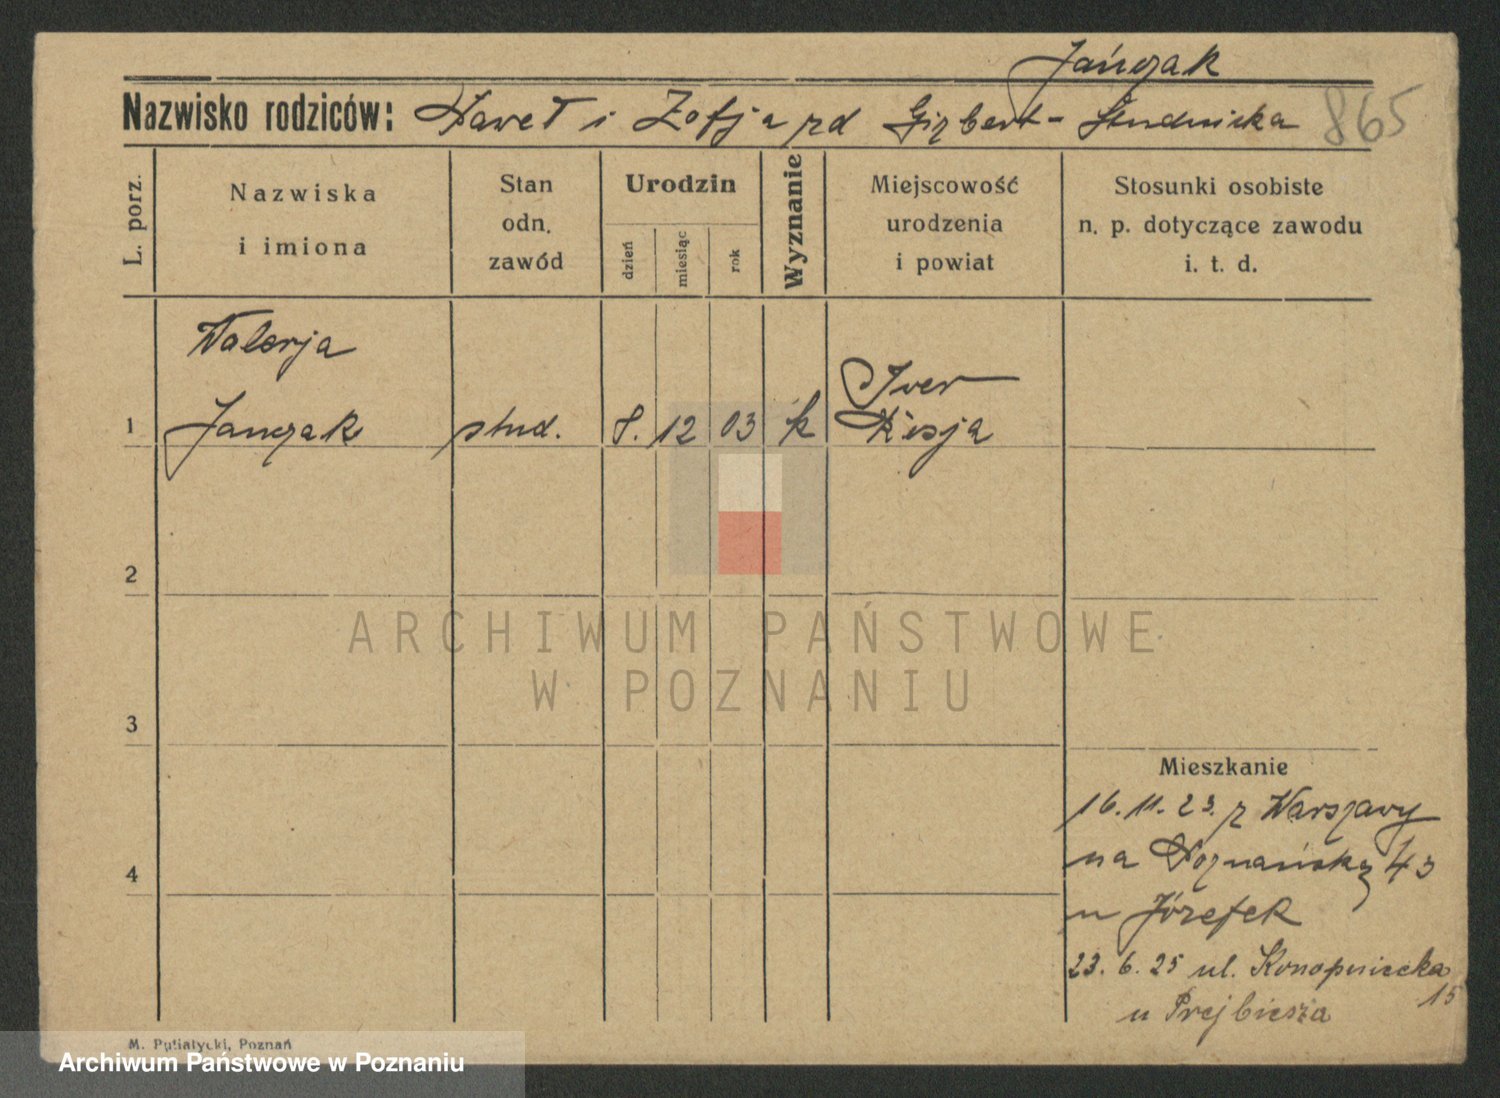 Jańczak
Nazwisko rodziców: Paweł i Zofja zd Gizbert-Studnicka 865
L. porz.
Nazwiska
i imiona
Stan
odn.
zawód
Urodzin
dzień
miesiąc
rok
Wyznanie
Miejscowość
urodzenia
i powiat
Stosunki osobiste
n. p. dotyczące zawodu
i. t. d.
Walerja
1 Janczak stud. 8. 12 03 k Twer
Rosja
2
3
4
Mieszkanie
16.11.23. z Warszawy
na Poznańską 43
u Józefek
23.6.25 ul. Konopnicka
15
u Prejbisza
M. Putiatycki, Poznań
ARCHIWUM PAŃSTWOWE
W POZNANIU
Archiwum Państwowe w Poznaniu